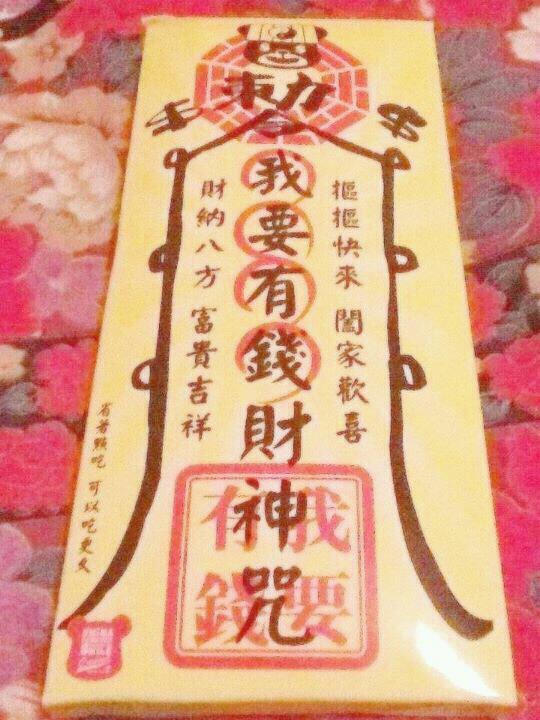 勅令
$ $
摳摳快來 闔家歡喜
我要有錢財神咒
財納八方 富貴吉祥
省著點吃 可以吃更久
我要
有錢